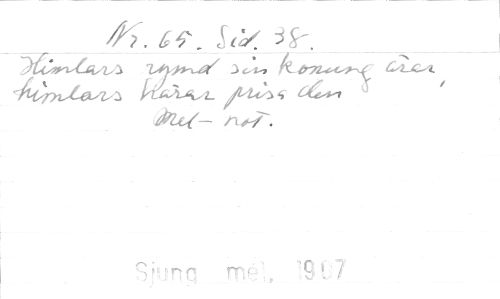 Nr. 65. Sid. 38.
Himlars rymd sin konung ärar,
himlars härar prisa den
Mel-not.
Sjung mel. 1907